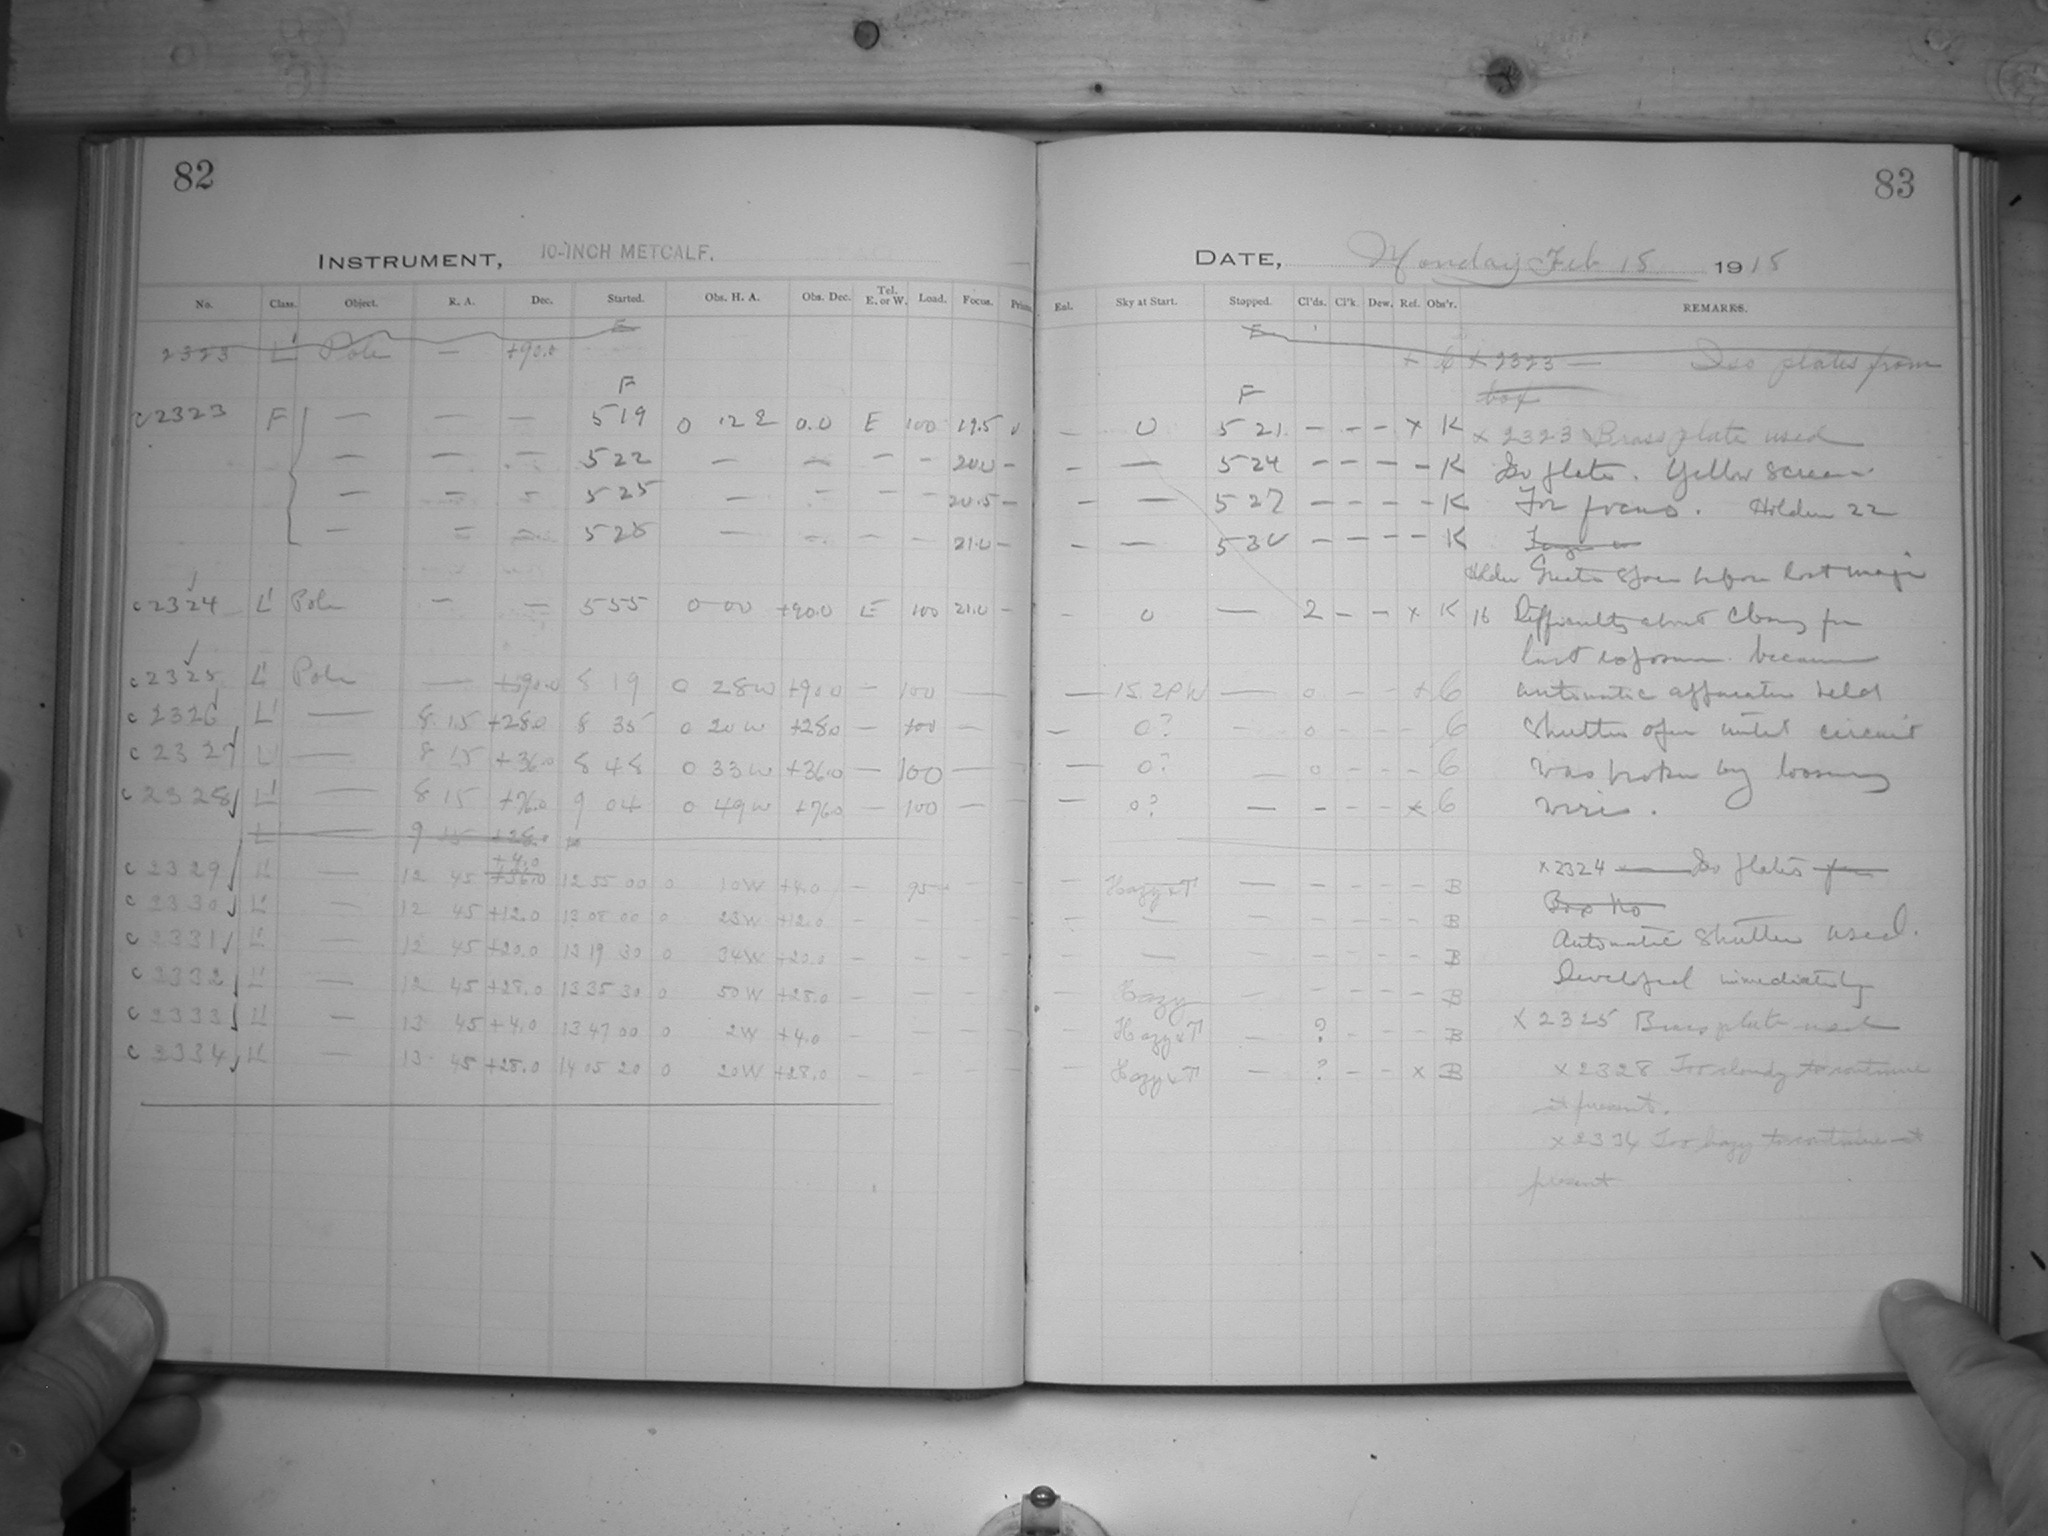 82
INSTRUMENT, 10-INCH METCALF.
No. Class. Object. R. A. Dec. Started. Obs. H. A. Obs. Dec. Tel. E. or W. Load. Focus.
2323 L' Pole — +90.0
F
c2323 F — — — 519 0 12 E 0.0 E 100 19.5
— — — 522 — — — — 20.0 —
— — — 525 — — — — 20.5 —
— — — 528 — — — — 21.0 —
c2324 L' Pole — — 555 0 00 +90.0 E 100 21.0 —
c2325 L' Pole — +90.0 8 19 0 28W +90.0 — 100 —
c2326 L' — 8 15 +28.0 8 35 0 20W +28.0 — 100 — —
c2327 L' — 8 15 +36.0 8 48 0 33W +36.0 — 100 — —
c2328 L' — 8 15 +76.0 9 04 0 49W +76.0 — 100 — —
L' — 9 15 +28.0
+4.0
c2329 L' — 12 45 +36.0 12 55 00 0 10W +4.0 — 95 — —
c2330 L' — 12 45 +12.0 13 08 00 0 23W +12.0 — — — —
c2331 L' — 12 45 +20.0 13 19 30 0 34W +20.0 — — — —
c2332 L' — 12 45 +28.0 13 35 30 0 50W +28.0 — — — —
c2333 L' — 13 45 +4.0 13 47 00 0 2W +4.0 — — — —
c2334 L' — 13 45 +28.0 14 05 20 0 20W +28.0 — — — —
83
DATE, Monday Feb 15 1915
Enl. Sky at Start. Stopped. Cl'ds. Cl'k. Dew. Ref. Obs'r. REMARKS.
x 6 x 2323 — Iso plates from
box
F
— 0 5 21 — — — x K x 2323 Brass plate used
— — 5 24 — — — — K Iso plate. Yellow screen
— — 5 27 — — — — K For focus. Holder 22
— — 5 30 — — — — K
Holder
— 0 — 2 — — x K 16 Difficulty about closing for
last exposure because
— 15.2PW — 0 — — x 6 automatic apparatus held
— 0? — 0 — — — 6 shutter open until circuit
— 0? — 0 — — — 6 was broken by loosening
— 0? — — — — x 6 wires.
x 2324 — Iso plates from
— Hazy+T — — — — — B Box No
— — — — — — — B Automatic shutter used.
— — — — — — — B Developed immediately
— Hazy — — — — — B
— Hazy+T — ? — — — B x 2325 Brass plate used
— Hazy+T — ? — — x B x 2328 Too cloudy to continue
at present.
x 2334 Too hazy to continue at
present